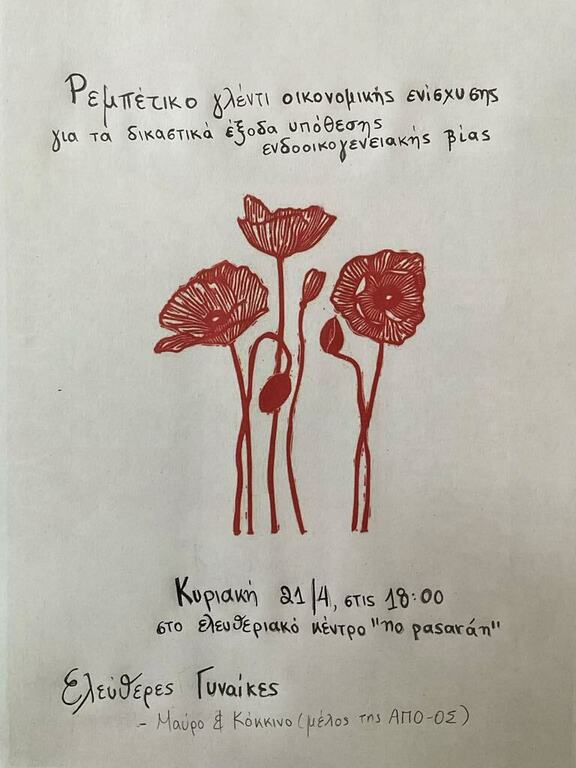 Ρεμπέτικο γλέντι οικονομικής ενίσχυσης
για τα δικαστικά έξοδα υπόθεσης
ενδοοικογενειακής βίας
Κυριακή 21/4, στις 18:00
στο ελευθεριακό κέντρο "no pasarán"
Ελεύθερες Γυναίκες
- Μαύρο & Κόκκινο (μέλος της ΑΠΟ-ΟΣ)